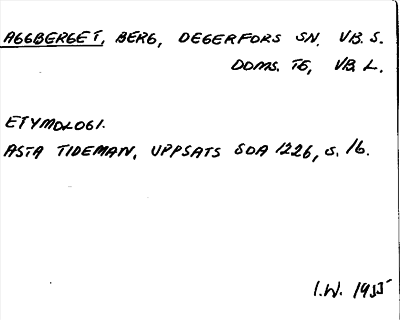 AGGBERGET, BERG, DEGERFORS SN. VB. S.
DOMS. TG, VB. L.
ETYMOLOGI.
ASTA TIDEMAN, UPPSATS SOA 1226, s. 16.
I.W. 1955